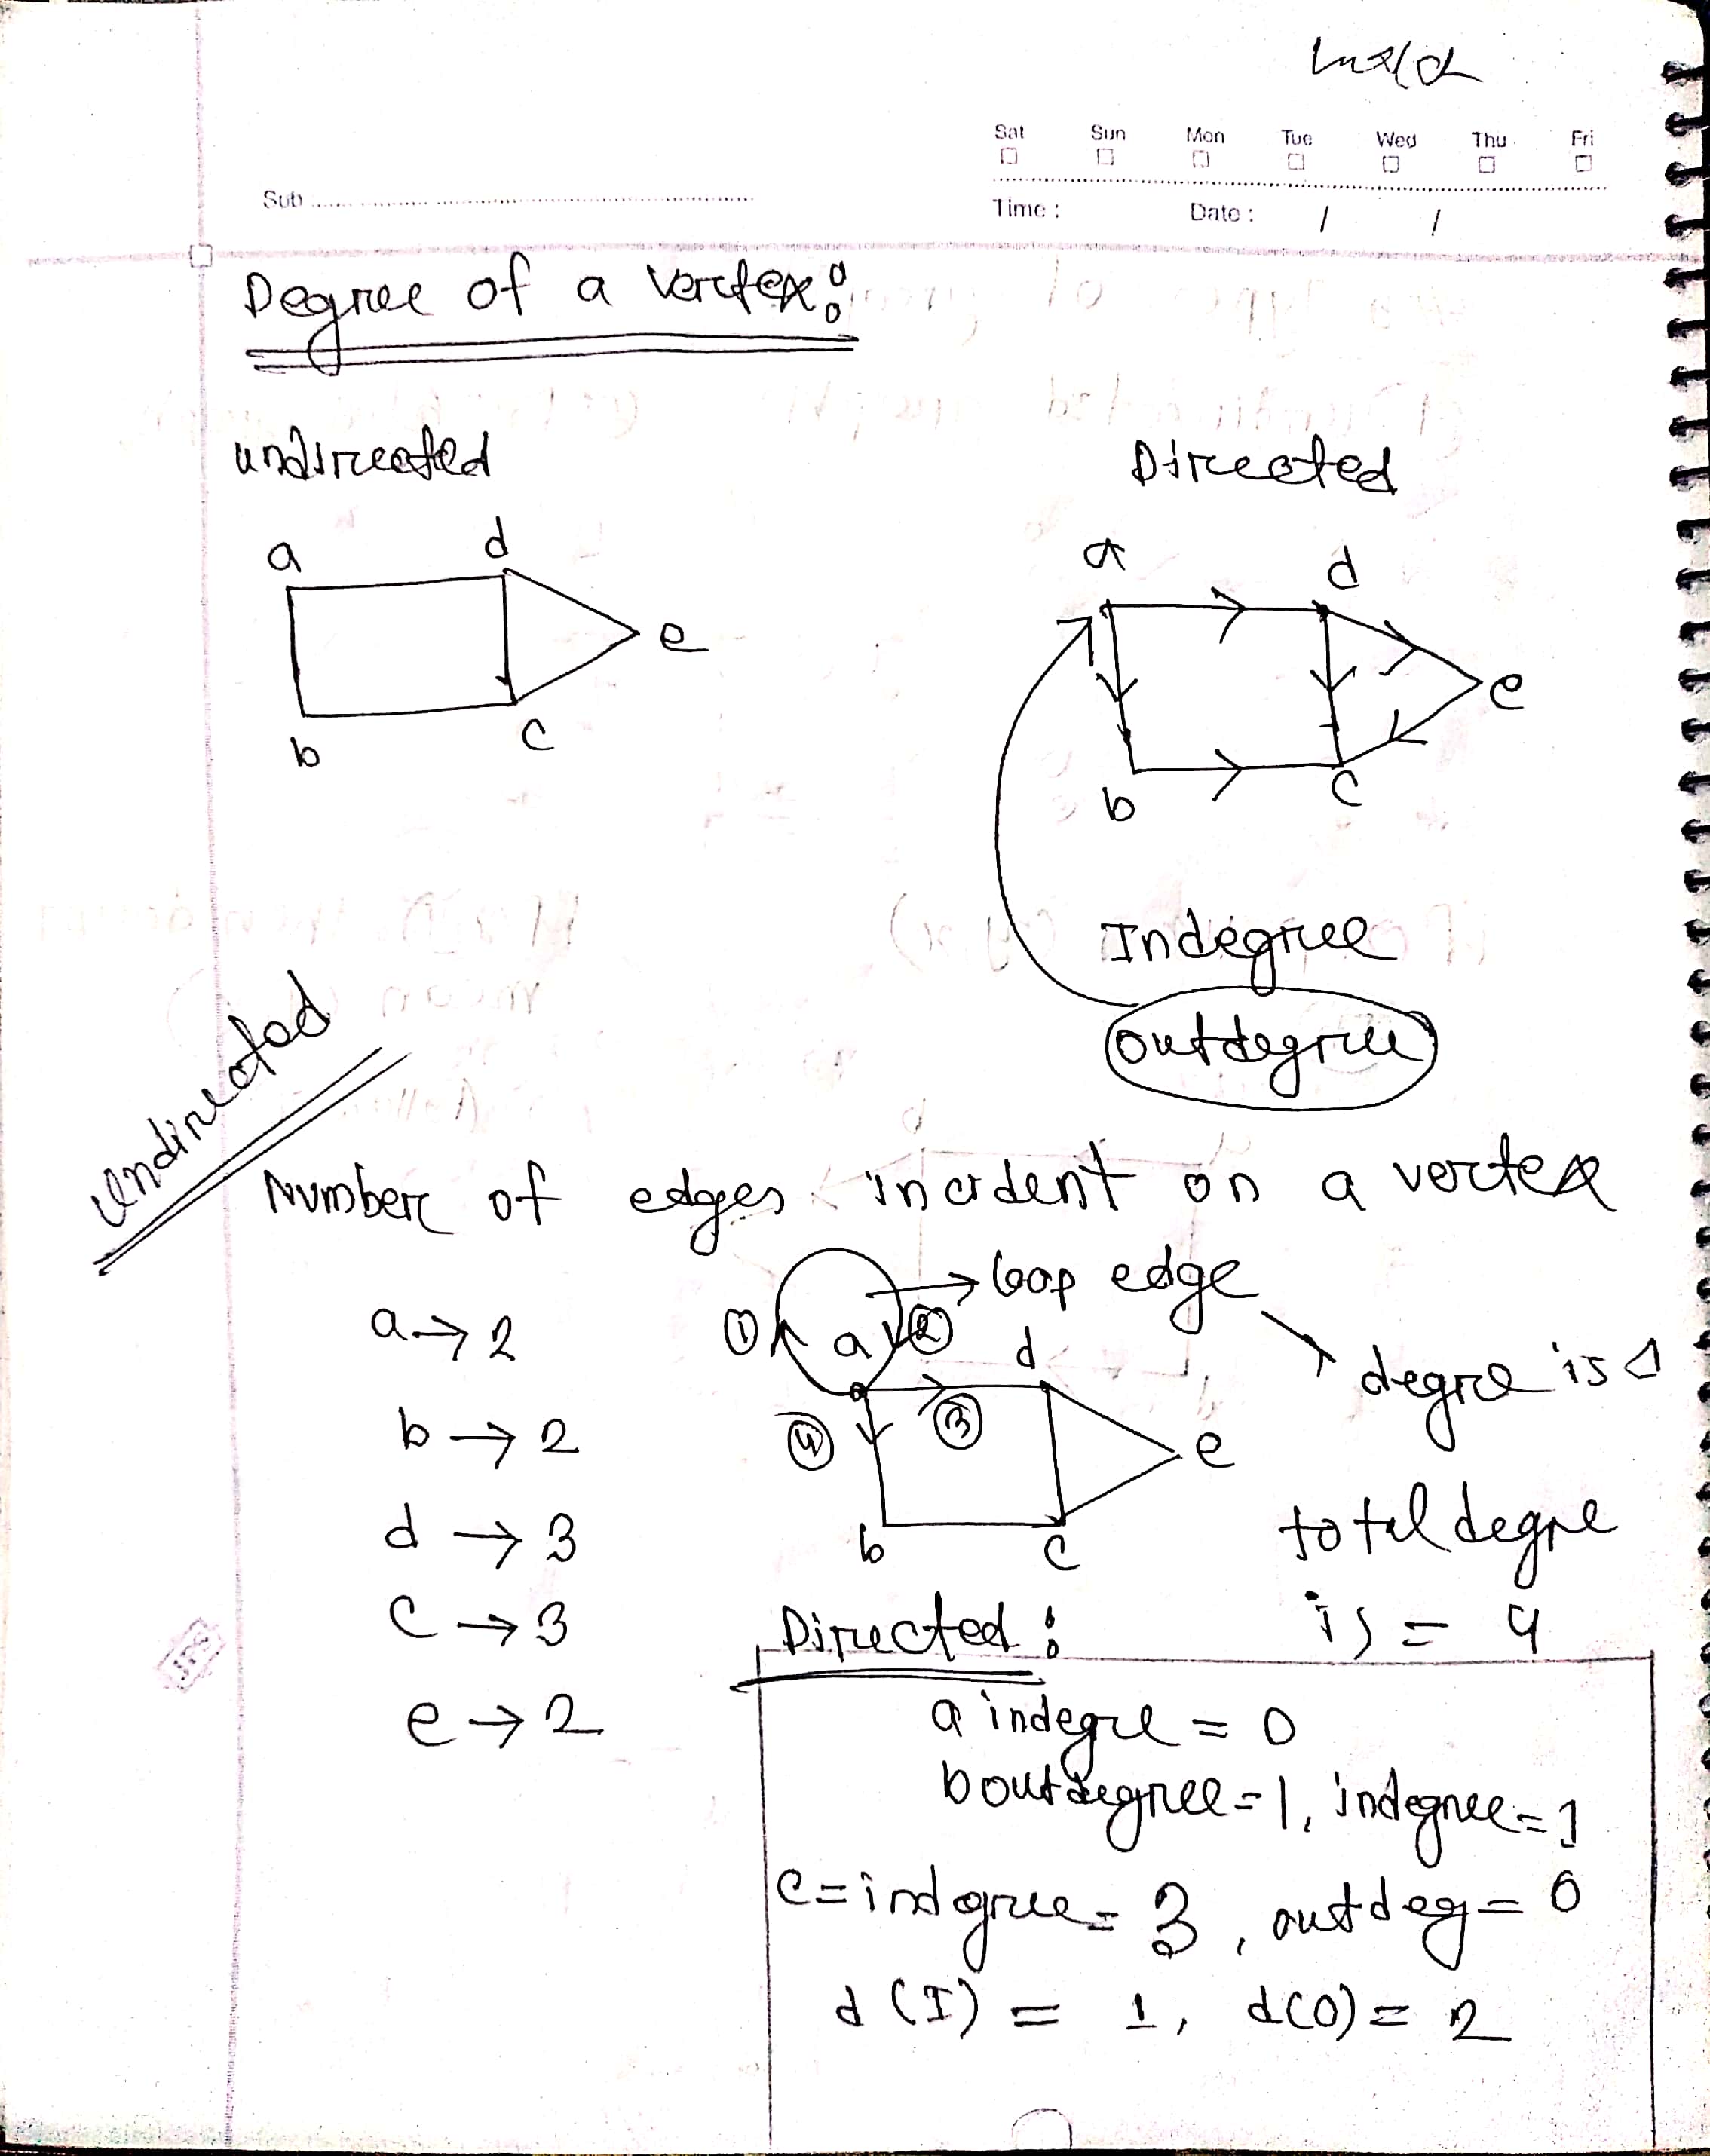 Sat Sun Mon Tue Wed Thu Fri
Sub
Time : Date : / /
Degree of a vertex:
undirected
Directed
a d
e
b c
a d
e
b c
Indegree
outdegree
Undirected
Number of edges incident on a vertex
→ loop edge
a → 2
① a ② d
degre is
b → 2
④ ③ e
d → 3
b c
total degre
is = 4
c → 3
Directed:
e → 2
a indegre = 0
b outdegree = 1, indegree = 1
c = indegree = 3, outdeg = 0
d (I) = 1, d(O) = 2